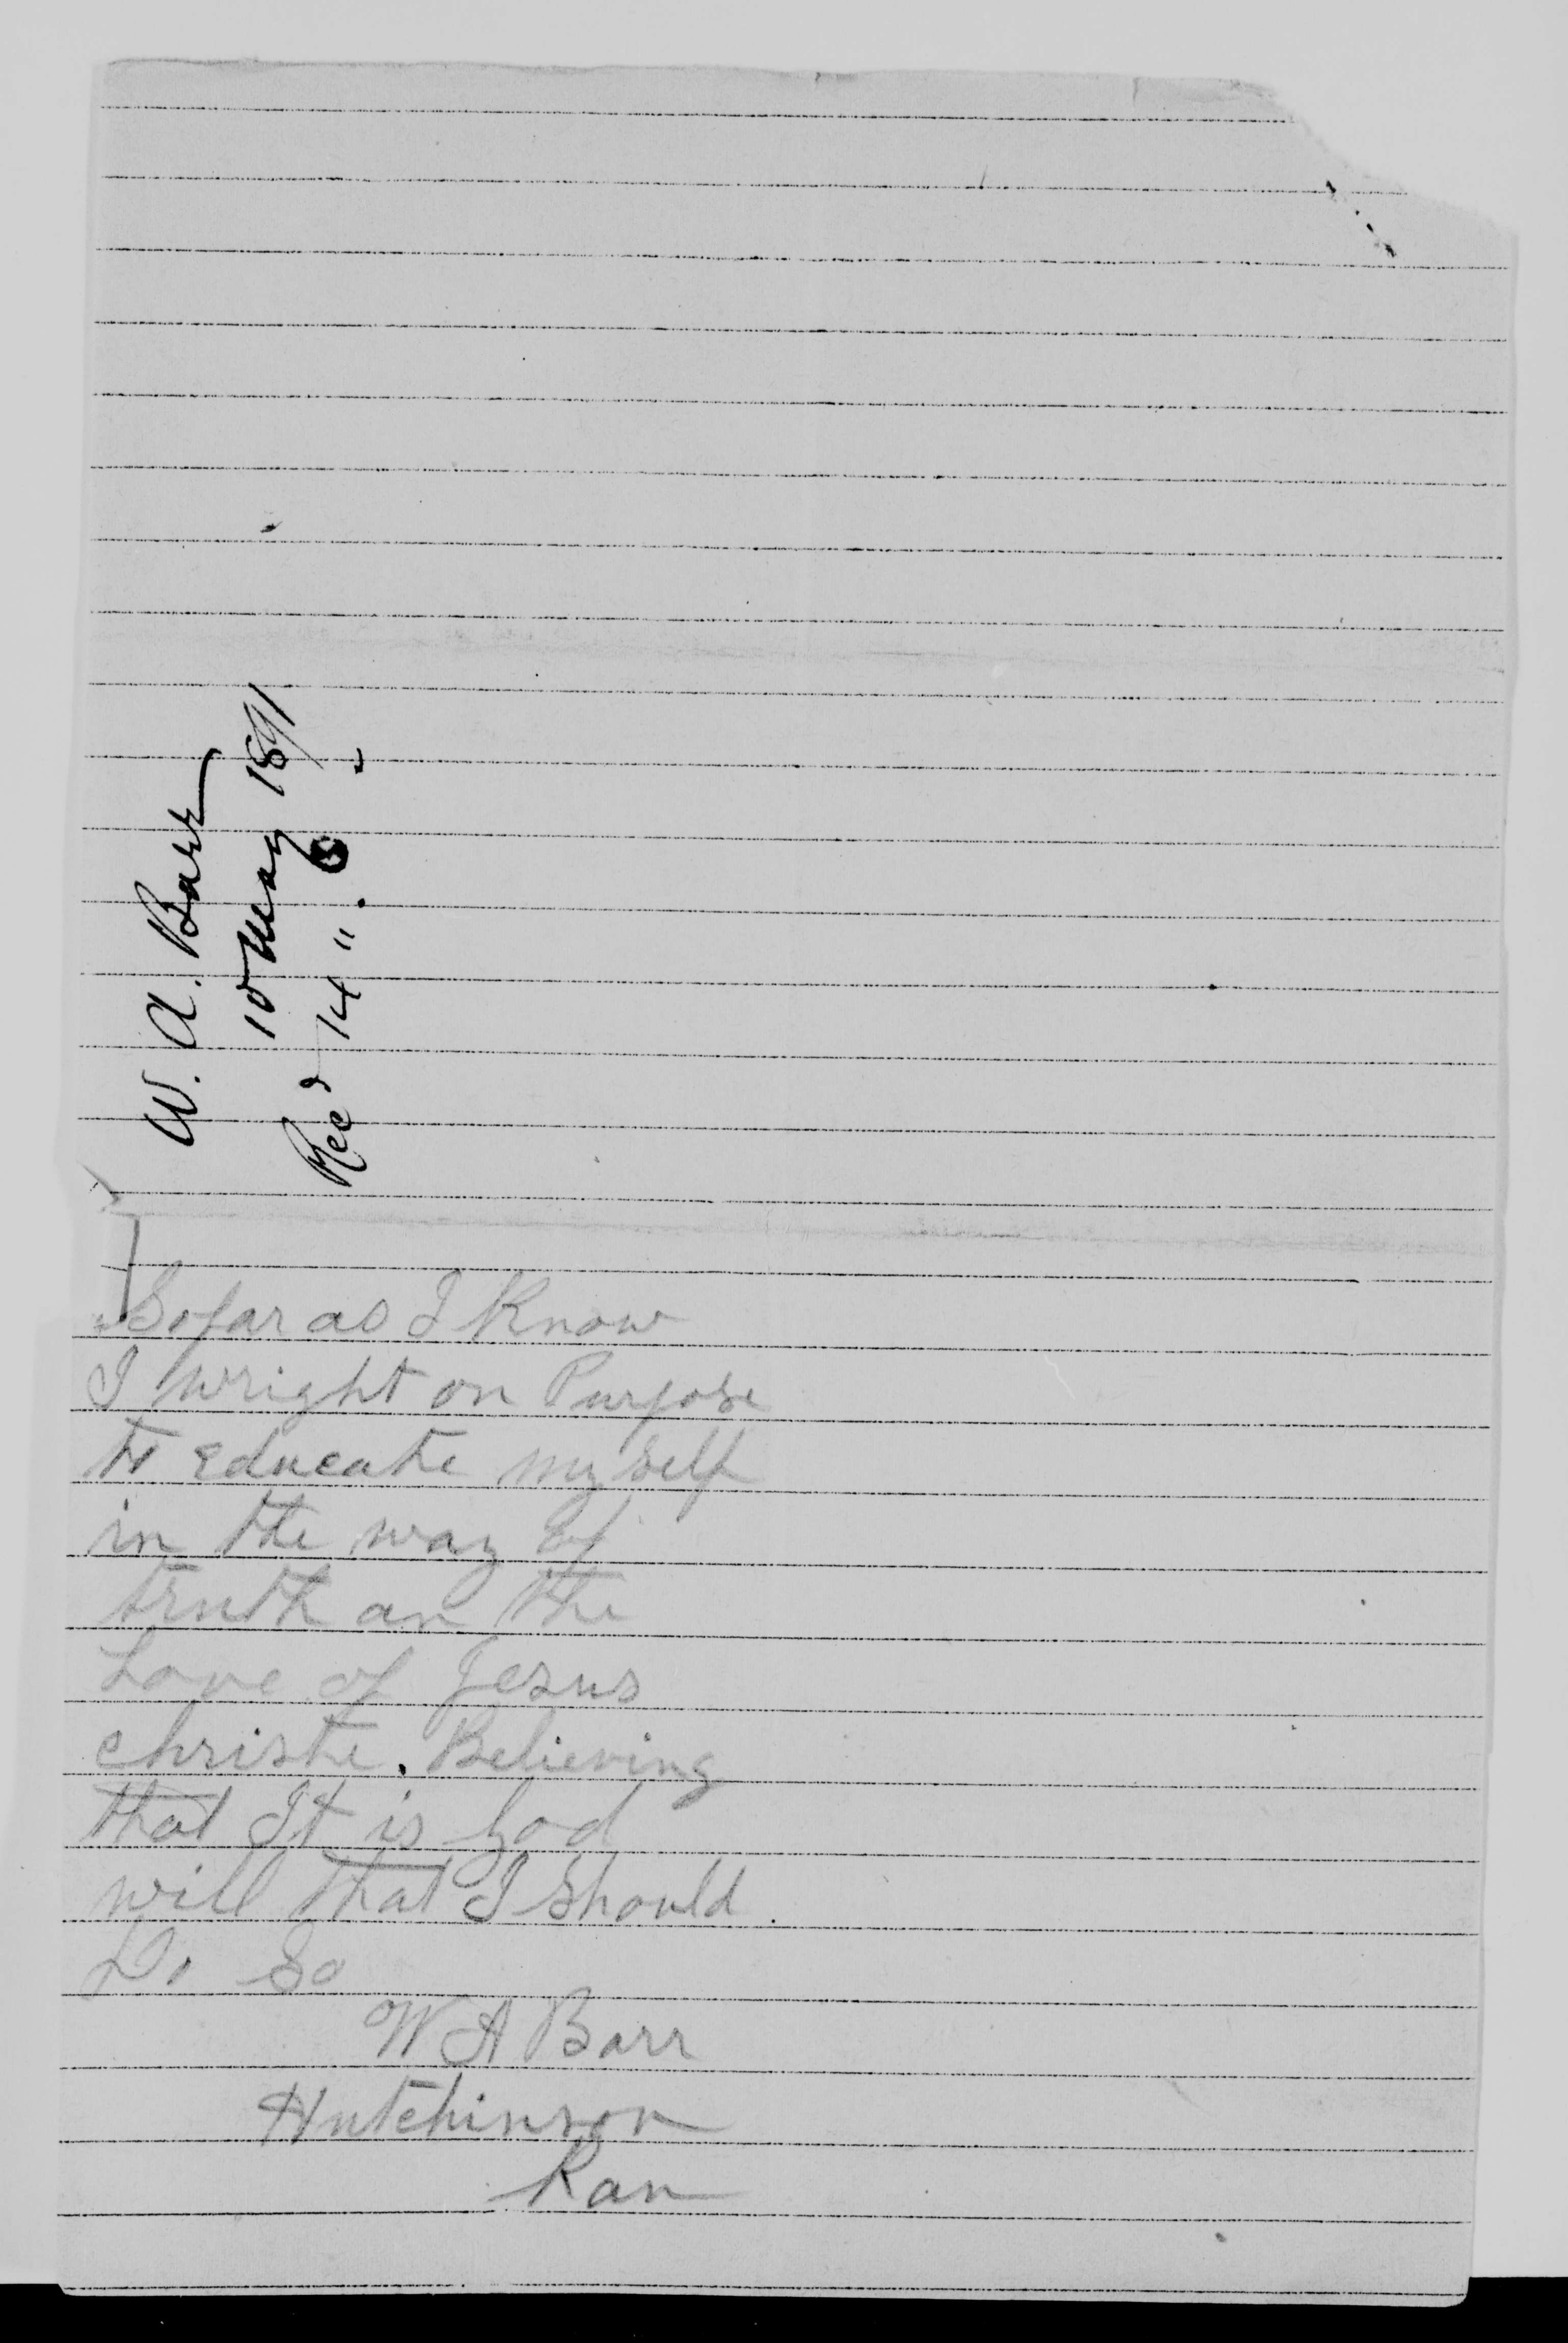 W. A. Barr
10 May 1891
Recd 14 " . "
Sofar as I Know
I wright on Purpose
to Educate my self
in the way of
truth an the
Love of Jesus
christe. Believing
that It is god
will that I Should
Do So
W A Barr
Hutchinson
Kan